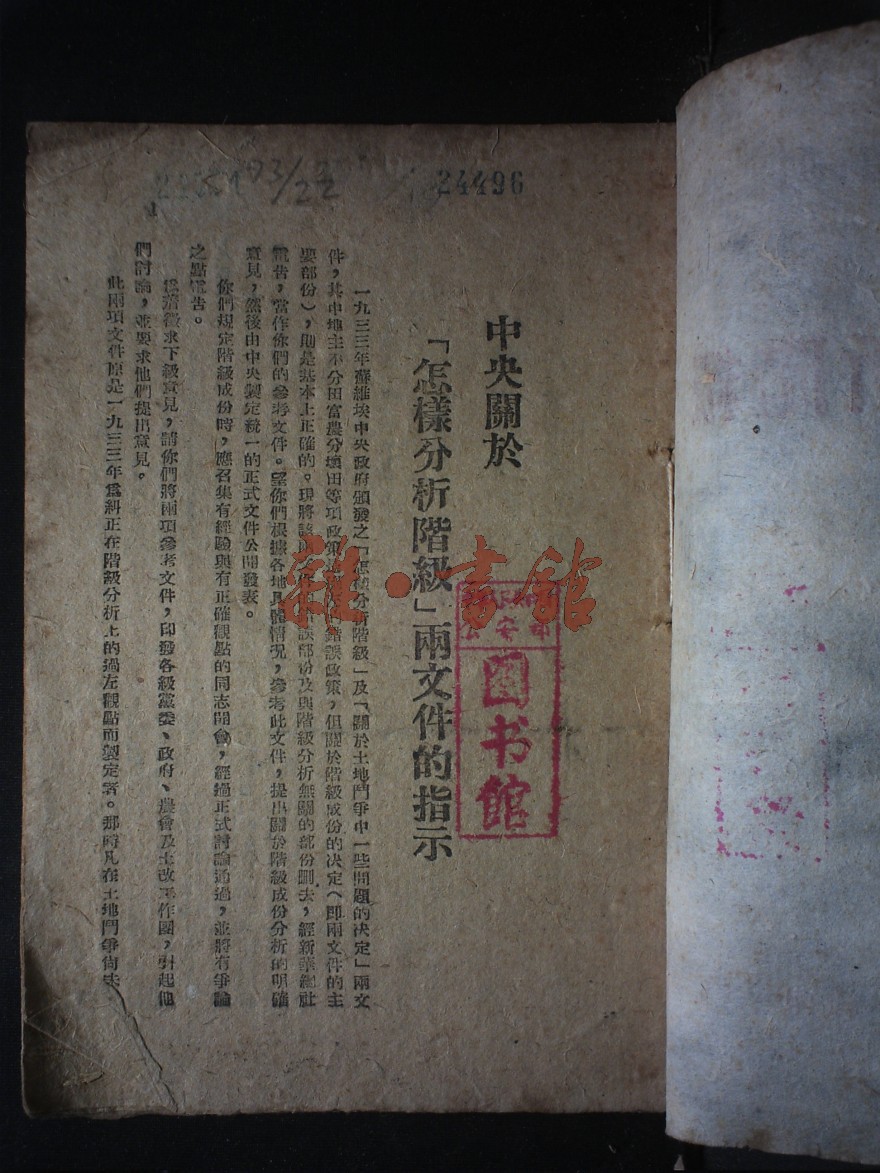 93/22
24496
中央關於
「怎樣分析階級」兩文件的指示
一九三三年蘇維埃中央政府頒發之「怎樣分析階級」及「關於土地鬥爭中一些問題的決定」兩文
件，其中地主不分田富農分壞田等項政策是錯誤政策，但關於階級成份的決定（即兩文件的主
要部份），則是基本上正確的。現將該兩文件的錯誤部份及與階級分析無關的部份刪去，經新華總社
電告，當作你們的參考文件。望你們根據各地具體情況，參考此文件，提出關於階級成份分析的明確
意見，然後由中央製定統一的正式文件公開發表。
你們規定階級成份時，應召集有經驗與有正確觀點的同志開會，經過正式討論通過，並將有爭論
之點電告。
爲着徵求下級意見，請你們將兩項參考文件，印發各級黨委、政府、農會及土改工作團，引起他
們討論，並要求他們提出意見。
此兩項文件原是一九三三年爲糾正在階級分析上的過左觀點而製定者。那時凡在土地鬥爭尙未
雜·書館
公安部
圖书館